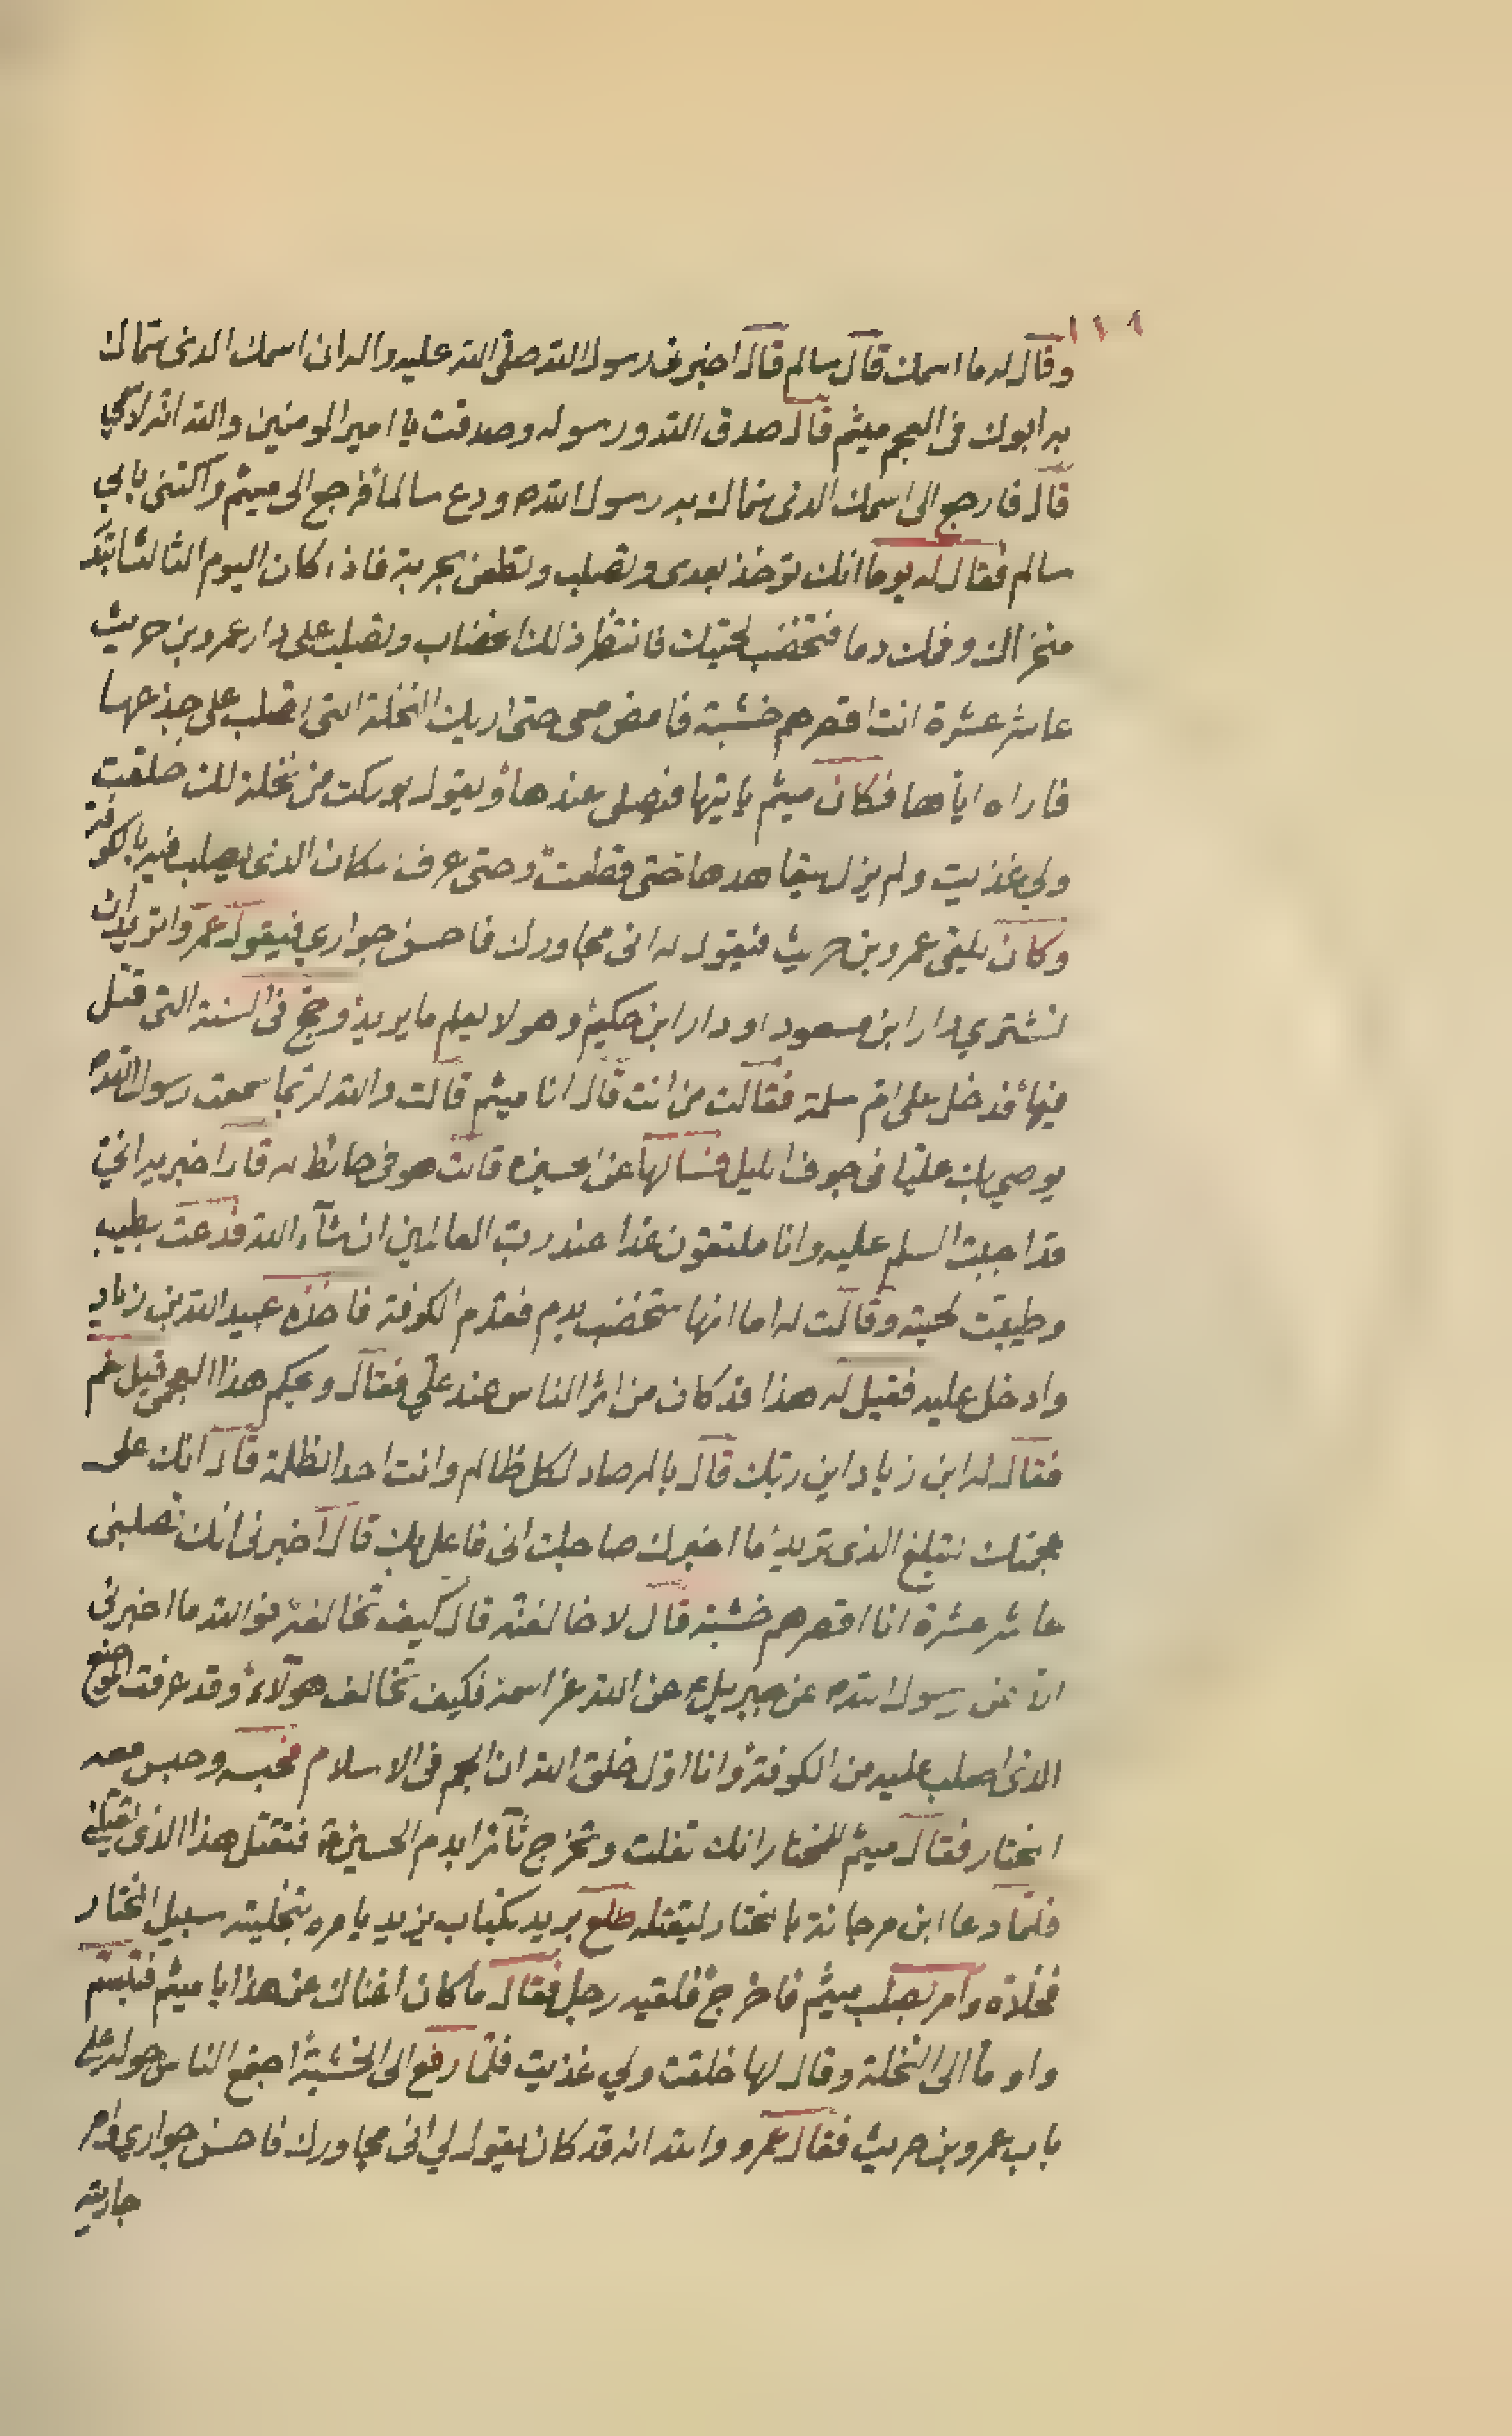 ١١٩
وقال له ما اسمك قال سالم قال اخبرني رسول الله صلى الله عليه واله ان اسمك الذي سماك
به ابوك في العجم ميثم قال صدق الله ورسوله وصدقت يا امير المومنين والله انه لاسمي
قال فارجع الى اسمك الذي سماك به رسول الله ص ودع سالما فرجع الى ميثم واكتنى بابي
سالم فقال له يوما انك توخذ بعدي وتصلب وتطعن بحربة فاذا كان اليوم الثالث ابتدر
منخراك وفمك دما فتخضب لحيتك فانتظر ذلك الخضاب وتصلب على دار عمرو بن حريث
عاشر عشرة انت اقصرهم خشبة فامض معي حتى اريك النخلة التي تصلب على جذعها
فاراه اياها فكان ميثم ياتيها فيصلي عندها ويقول بوركت من نخلة لك خلقت
ولي غذيت ولم يزل يتعاهدها حتى قطعت وحتى عرف مكان الذي يصلب فيه بالكوفة
وكان يلقى عمرو بن حريث فيقول له اني مجاورك فاحسن جواري فيقول عمرو اتريد ان
تشتري دار ابن مسعود او دار ابن حكيم وهو لا يعلم ما يريد وحج في السنة التي قتل
فيها فدخل على ام سلمة فقالت من انت قال انا ميثم قالت والله لربما سمعت رسول الله ص
يوصي بك عليا في جوف الليل فسالها عن الحسين ع قالت هو في حائط له قال اخبريه اني
قد احببت السلم عليه وانا ملتقون غدا عند رب العالمين ان شاء الله فدعت بطيب
وطيبت لحيته وقالت له اما انها ستخضب بدم فقدم الكوفة فاخذه عبيد الله بن زياد
وادخل عليه فقيل له هذا قد كان من اثر الناس عند علي فقال ويحكم هذا العجمي قيل نعم
فقال له ابن زياد اين ربك قال بالمرصاد لكل ظالم وانت احد الظلمة قال انك على
عجمتك لتبلغ الذي تريد ما اخبرك صاحبك اني فاعل بك قال اخبرني انك تصلبني
عاشر عشرة انا اقصرهم خشبة قال لاخالفنه قال كيف تخالفه فوالله ما اخبرني
الا عن رسول الله ص عن جبريل ع عن الله عز اسمه فكيف تخالف هولاء وقد عرفت الموضع
الذي اصلب عليه من الكوفة وانا اول خلق الله ان الجم في الاسلام فحبسه وحبس معه
المختار فقال ميثم للمختار انك تفلت وتخرج ثائرا بدم الحسين ع فتقتل هذا الذي يقتلني
فلما دعا ابن مرجانة بالمختار ليقتله طلع بريد بكتاب يزيد يامره بتخلية سبيل المختار
فخلاه وامر بصلب ميثم فاخرج فلقيه رجل فقال ما كان اغناك عن هذا يا ميثم فتبسم
واوما الى النخلة وقال لها خلقت ولي غذيت فلما رفع الى الخشبة اجتمع الناس حوله على
باب عمرو بن حريث فقال عمرو والله انه قد كان يقول لي اني مجاورك فاحسن جواري وامر
جاريته